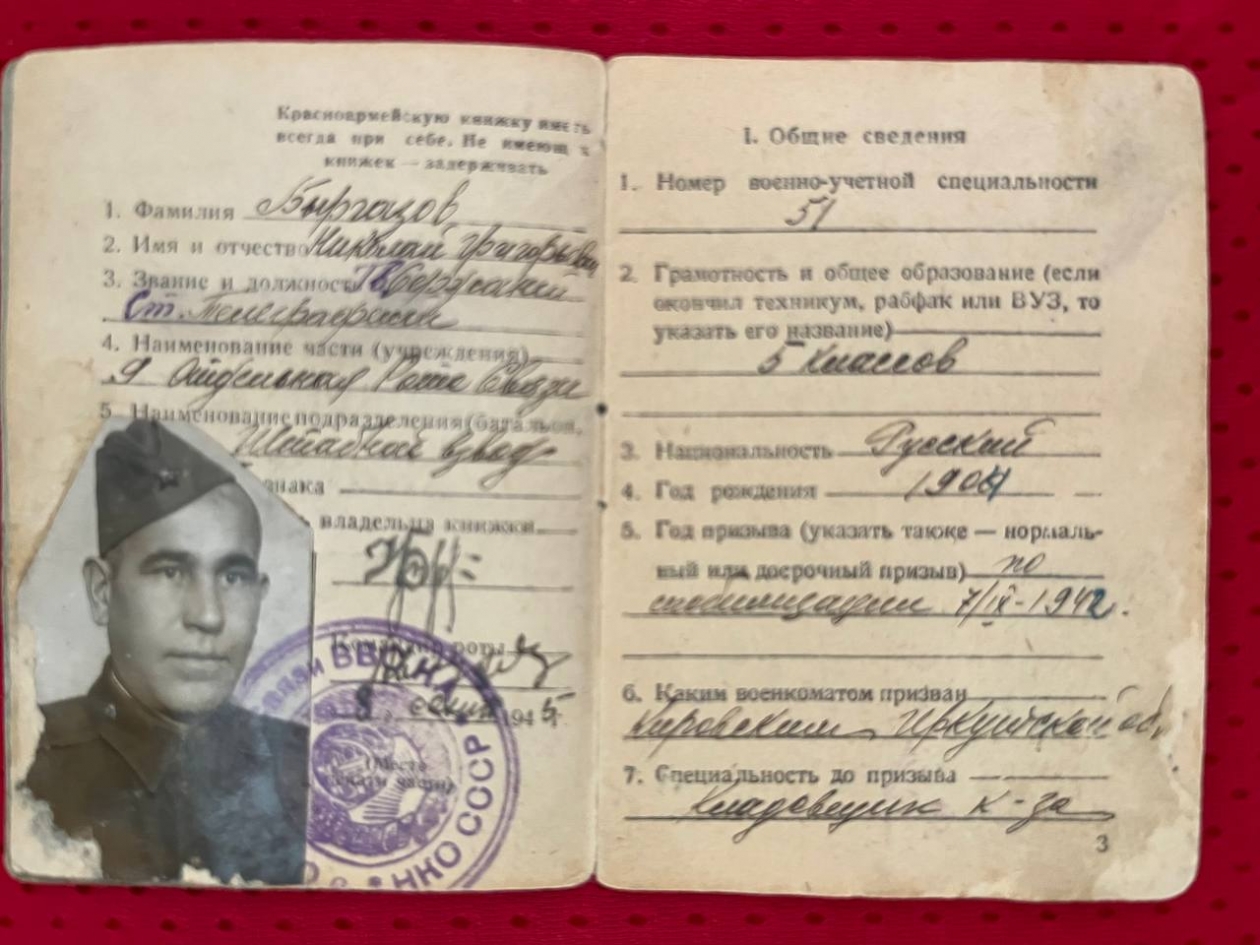 Красноармейскую книжку иметь
всегда при себе. Не имеющ х
книжек — задерживать
1. Фамилия Быргазов
2. Имя и отчество Николай Григорьевич
3. Звание и должность Гв. Сержант
Ст. Телеграфист
4. Наименование части (учреждения)
9 Отдельная Рота Связи
5 Наименование подразделения (батальон,
Штабной взвод
знака
владельца книжки
Командир роты
8 1945 г.
(Место
печати части)
связи ВВ
ННО СССР
I. Общие сведения
1. Номер военно-учетной специальности
51
2. Грамотность и общее образование (если
окончил техникум, рабфак или ВУЗ, то
указать его название)
5 классов
3. Национальность Русский
4. Год рождения 1904
5. Год призыва (указать также — нормаль-
ный или досрочный призыв) по
мобилизации 7/IX-1942.
6. Каким военкоматом призван
Кировским, Иркутской об,
7. Специальность до призыва
Кладовщик к-за
3